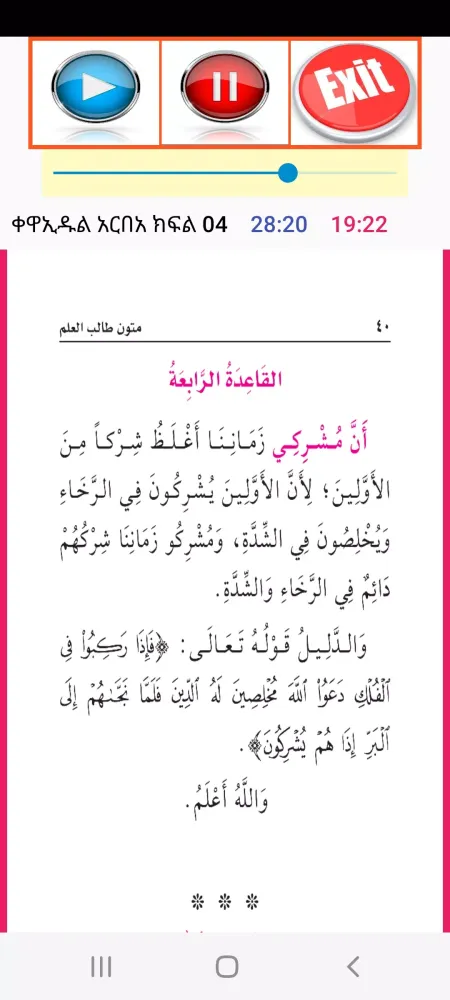 Exit
ቀዋኢዱል አርበአ ክፍል 04 28:20 19:22
متون طالب العلم ٤٠
القَاعِدَةُ الرَّابِعَةُ
أَنَّ مُشْرِكِي زَمَانِنَا أَغْلَظُ شِرْكاً مِنَ
الأَوَّلِينَ؛ لِأَنَّ الأَوَّلِينَ يُشْرِكُونَ فِي الرَّخَاءِ
وَيُخْلِصُونَ فِي الشِّدَّةِ، وَمُشْرِكُو زَمَانِنَا شِرْكُهُمْ
دَائِمٌ فِي الرَّخَاءِ وَالشِّدَّةِ.
وَالدَّلِيلُ قَوْلُهُ تَعَالَى: ﴿فَإِذَا رَكِبُوا۟ فِي
ٱلْفُلْكِ دَعَوُا۟ ٱللَّهَ مُخْلِصِينَ لَهُ ٱلدِّينَ فَلَمَّا نَجَّىٰهُمْ إِلَى
ٱلْبَرِّ إِذَا هُمْ يُشْرِكُونَ﴾.
وَاللَّهُ أَعْلَمُ.